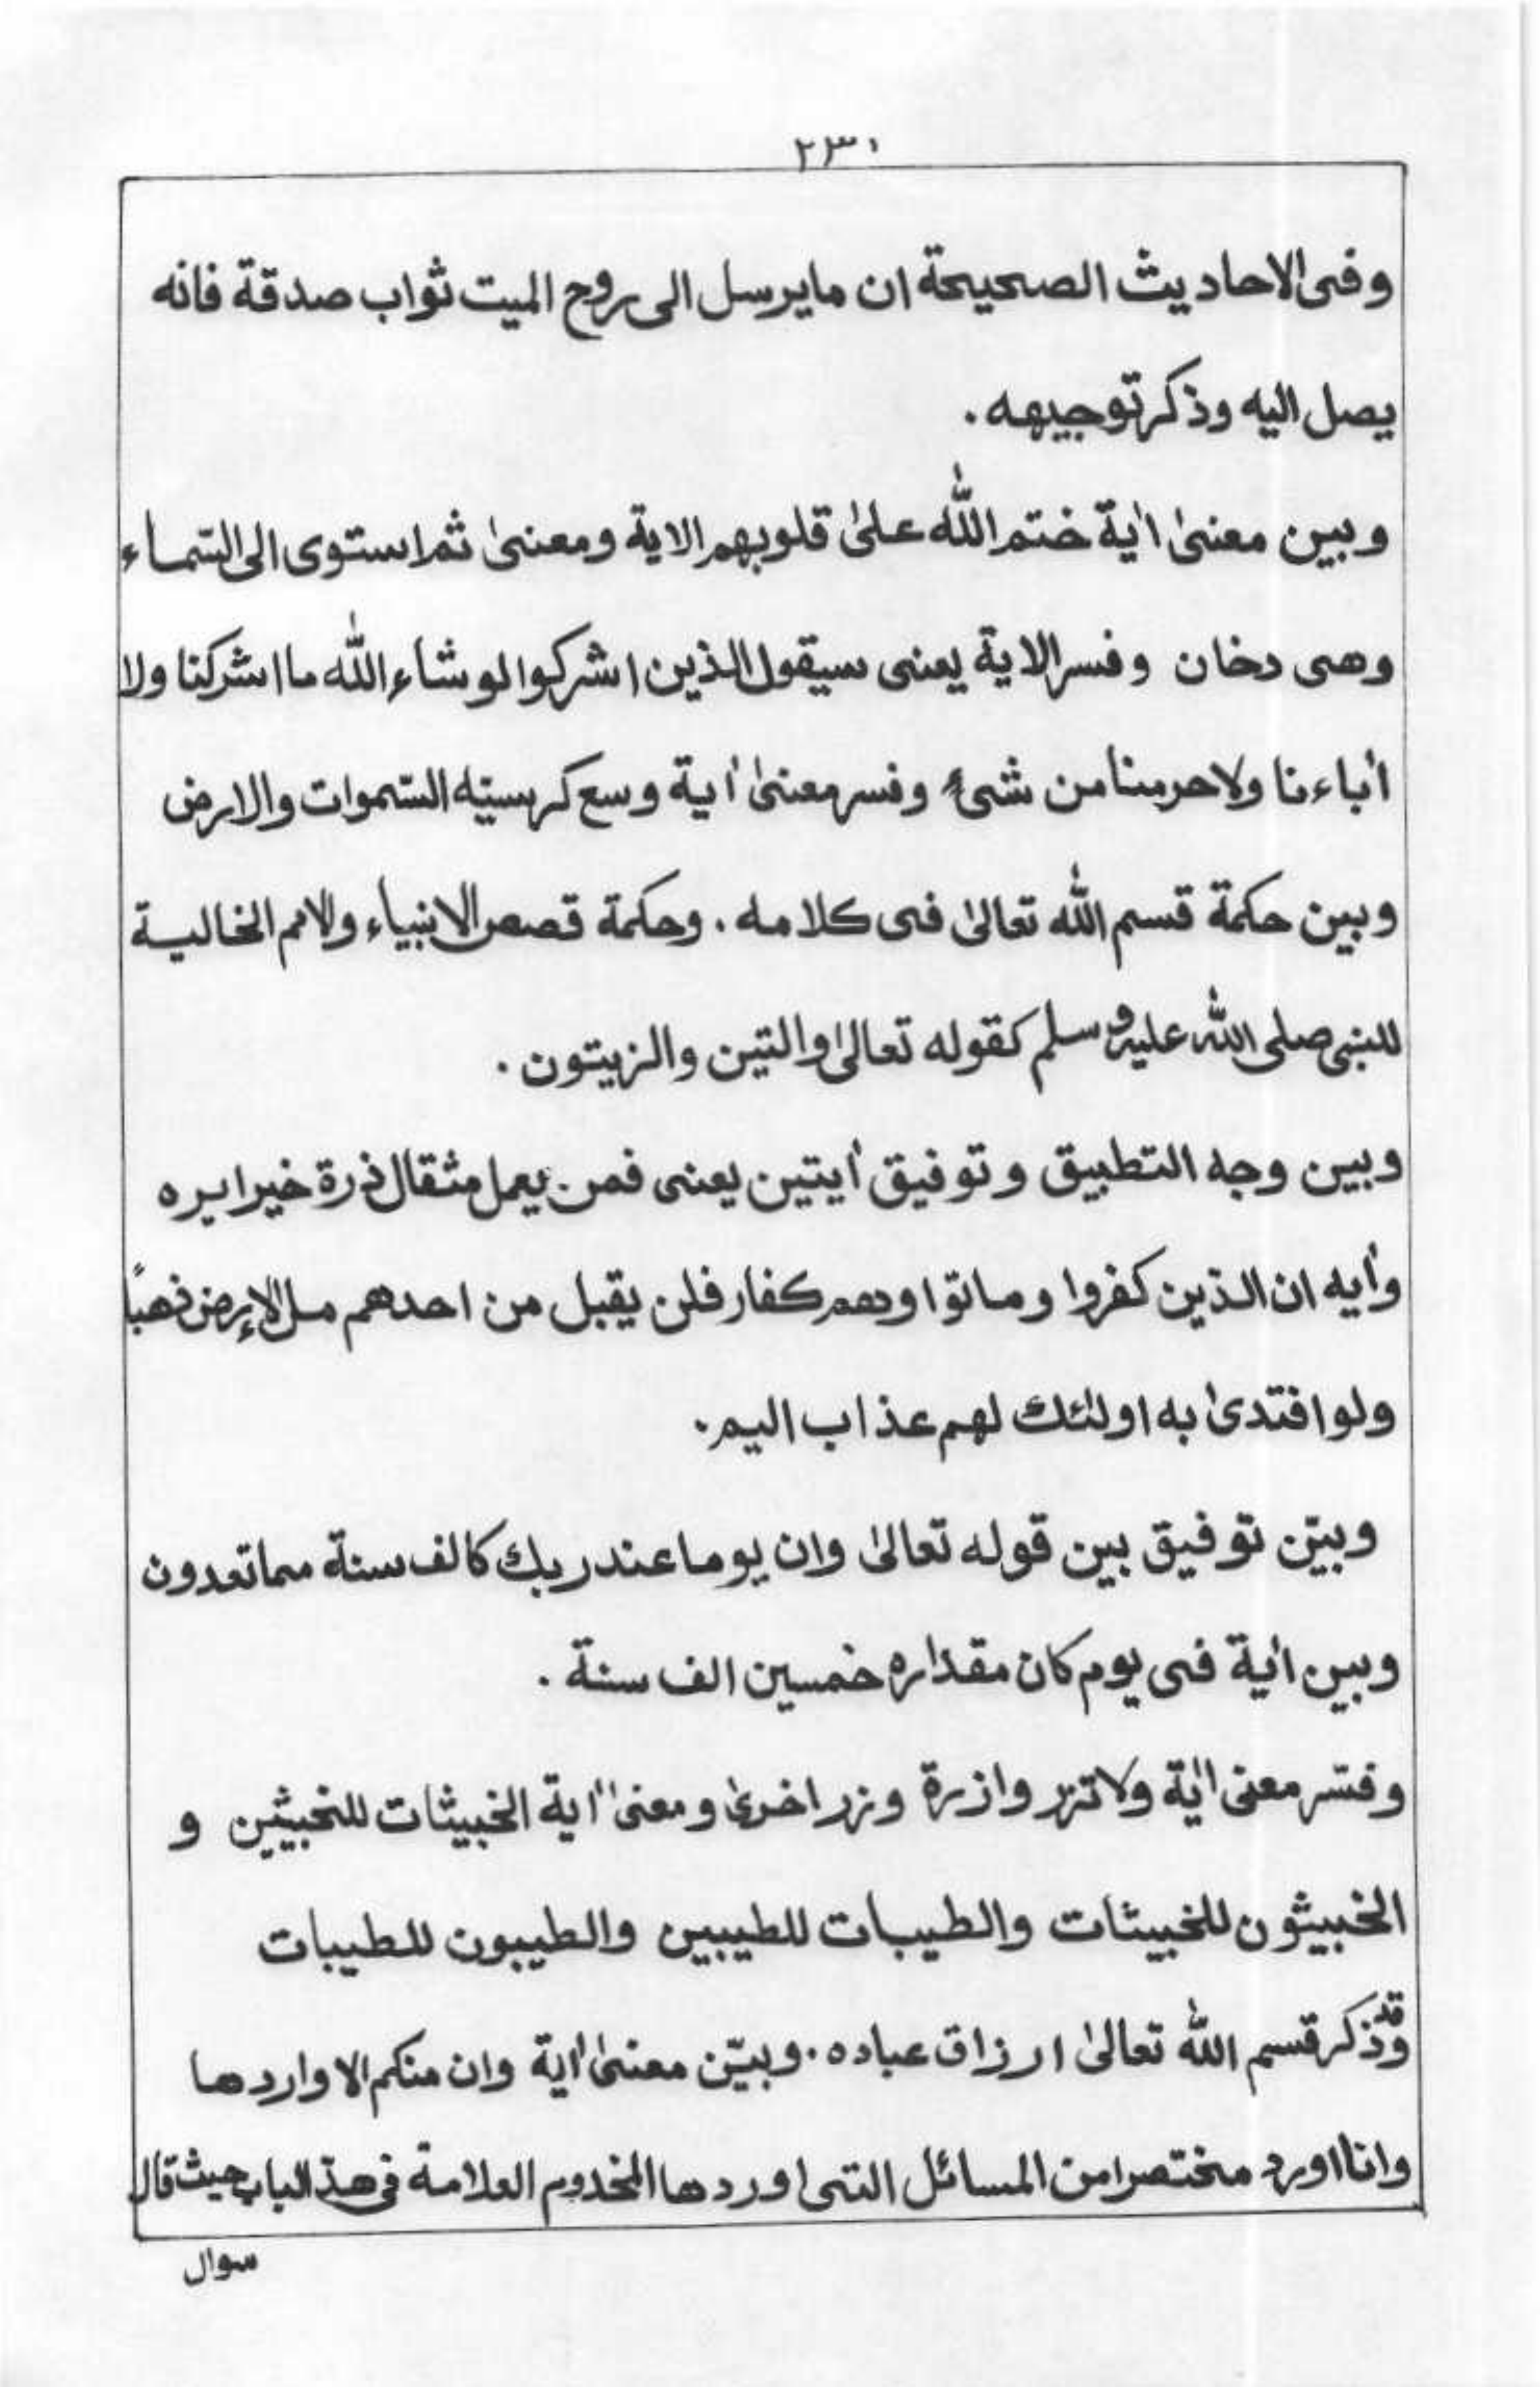 ٢٣٠
وفى الاحاديث الصحيحة ان مايرسل الى روح الميت ثواب صدقة فانه
يصل اليه وذكر توجيهه .
وبين معنىٰ اٰية ختم الله علىٰ قلوبهم الاية ومعنىٰ ثم استوى الى السّماء
وهى دخان وفسر الاية يعنى سيقول الذين اشركوا لو شاء الله ما اشركنا ولا
اٰباءنا ولاحرمنا من شىءٍ وفسر معنىٰ اٰية وسع كرسيّه السّموات والارض
وبين حكمة قسم الله تعالىٰ فى كلامه . وحكمة قصص الانبياء ولامم الخالية
للنبى صلى الله عليه وسلم كقوله تعالىٰ والتين والزيتون .
وبين وجه التطبيق وتوفيق اٰيتين يعنى فمن يعمل مثقال ذرة خيرا يره
واٰيه ان الذين كفروا وماتوا وهم كفار فلن يقبل من احدهم مل الارض ذهبًا
ولو افتدىٰ به اولئك لهم عذاب اليم .
وبيّن توفيق بين قوله تعالىٰ وان يوما عند ربك كالف سنة مما تعدون
وبين اٰية فى يوم كان مقداره خمسين الف سنة .
وفسّر معنى اٰية ولا تزر وازرة وزر اخرىٰ ومعنىٰ اٰية الخبيثات للخبيثين و
الخبيثون للخبيثات والطيبات للطيبين والطيبون للطيبات
وقد ذكر قسم الله تعالىٰ ارزاق عباده . وبيّن معنىٰ اٰية وان منكم الا واردها
وانا اورد مختصرا من المسائل التى اوردها المخدوم العلامة فى هذا الباب حيث قال
سوال